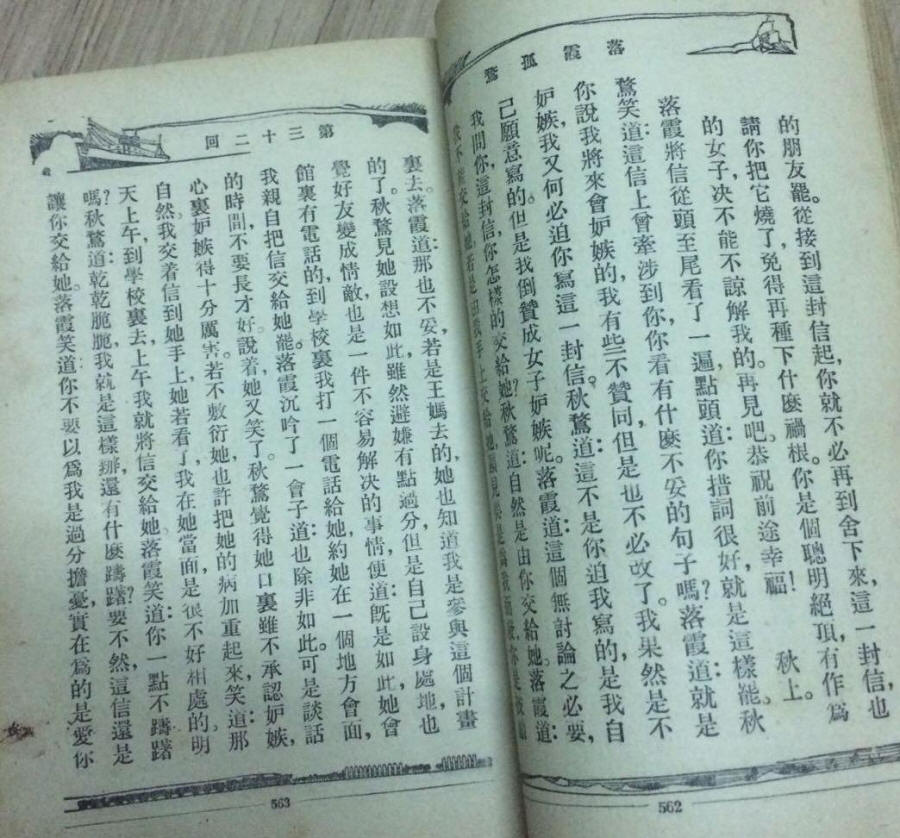 落霞孤鶩
的朋友罷。從接到這封信起,你就不必再到舍下來,這一封信,也
請你把它燒了,免得再種下什麼禍根。你是個聰明絕頂,有作為
的女子,決不能不諒解我的。再見吧。恭祝前途幸福! 秋上。
落霞將信從頭至尾看了一遍,點頭道:你措詞很好,就是這樣罷。秋
鶩笑道:這信上曾牽涉到你,你看有什麼不妥的句子嗎?落霞道:就是
你說我將來會妒嫉的,我有些不贊同,但是也不必改了。我果然是不
妒嫉,我又何必迫你寫這一封信。秋鶩道:這不是你迫我寫的,是我自
己願意寫的。但是我倒贊成女子妒嫉呢。落霞道:這個無討論之必要,
我問你,這封信,你怎樣的交給她?秋鶩道:自然是由你交給她。落霞道:
562
第三十二回
裏去。落霞道:那也不妥,若是王媽去的,她也知道我是參與這個計畫
的了。秋鶩見她設想如此,雖然避嫌有點過分,但是自己設身處地,也
覺好友變成情敵,也是一件不容易解決的事情,便道:既是如此,她會
館裏有電話的,到學校裏我打一個電話給她,約她在一個地方會面,
我親自把信交給她罷。落霞沉吟了一會子道:也除非如此,可是談話
的時間,不要長才好。說着,她又笑了。秋鶩覺得她口裏雖不承認妒嫉,
心裏妒嫉得十分厲害。若不敷衍她,也許把她的病加重起來,笑道:那
自然,我交着信到她手上,她若看了,我在她當面,是很不好相處的。明
天上午,到學校裏去,上午我就將信交給她。落霞笑道:你一點不躊躇
嗎?秋鶩道:乾乾脆脆,我就是這樣辦,還有什麼躊躇?要不然,這信還是
讓你交給她。落霞笑道:你不要以為我是過分擔憂,實在為的是愛你
563